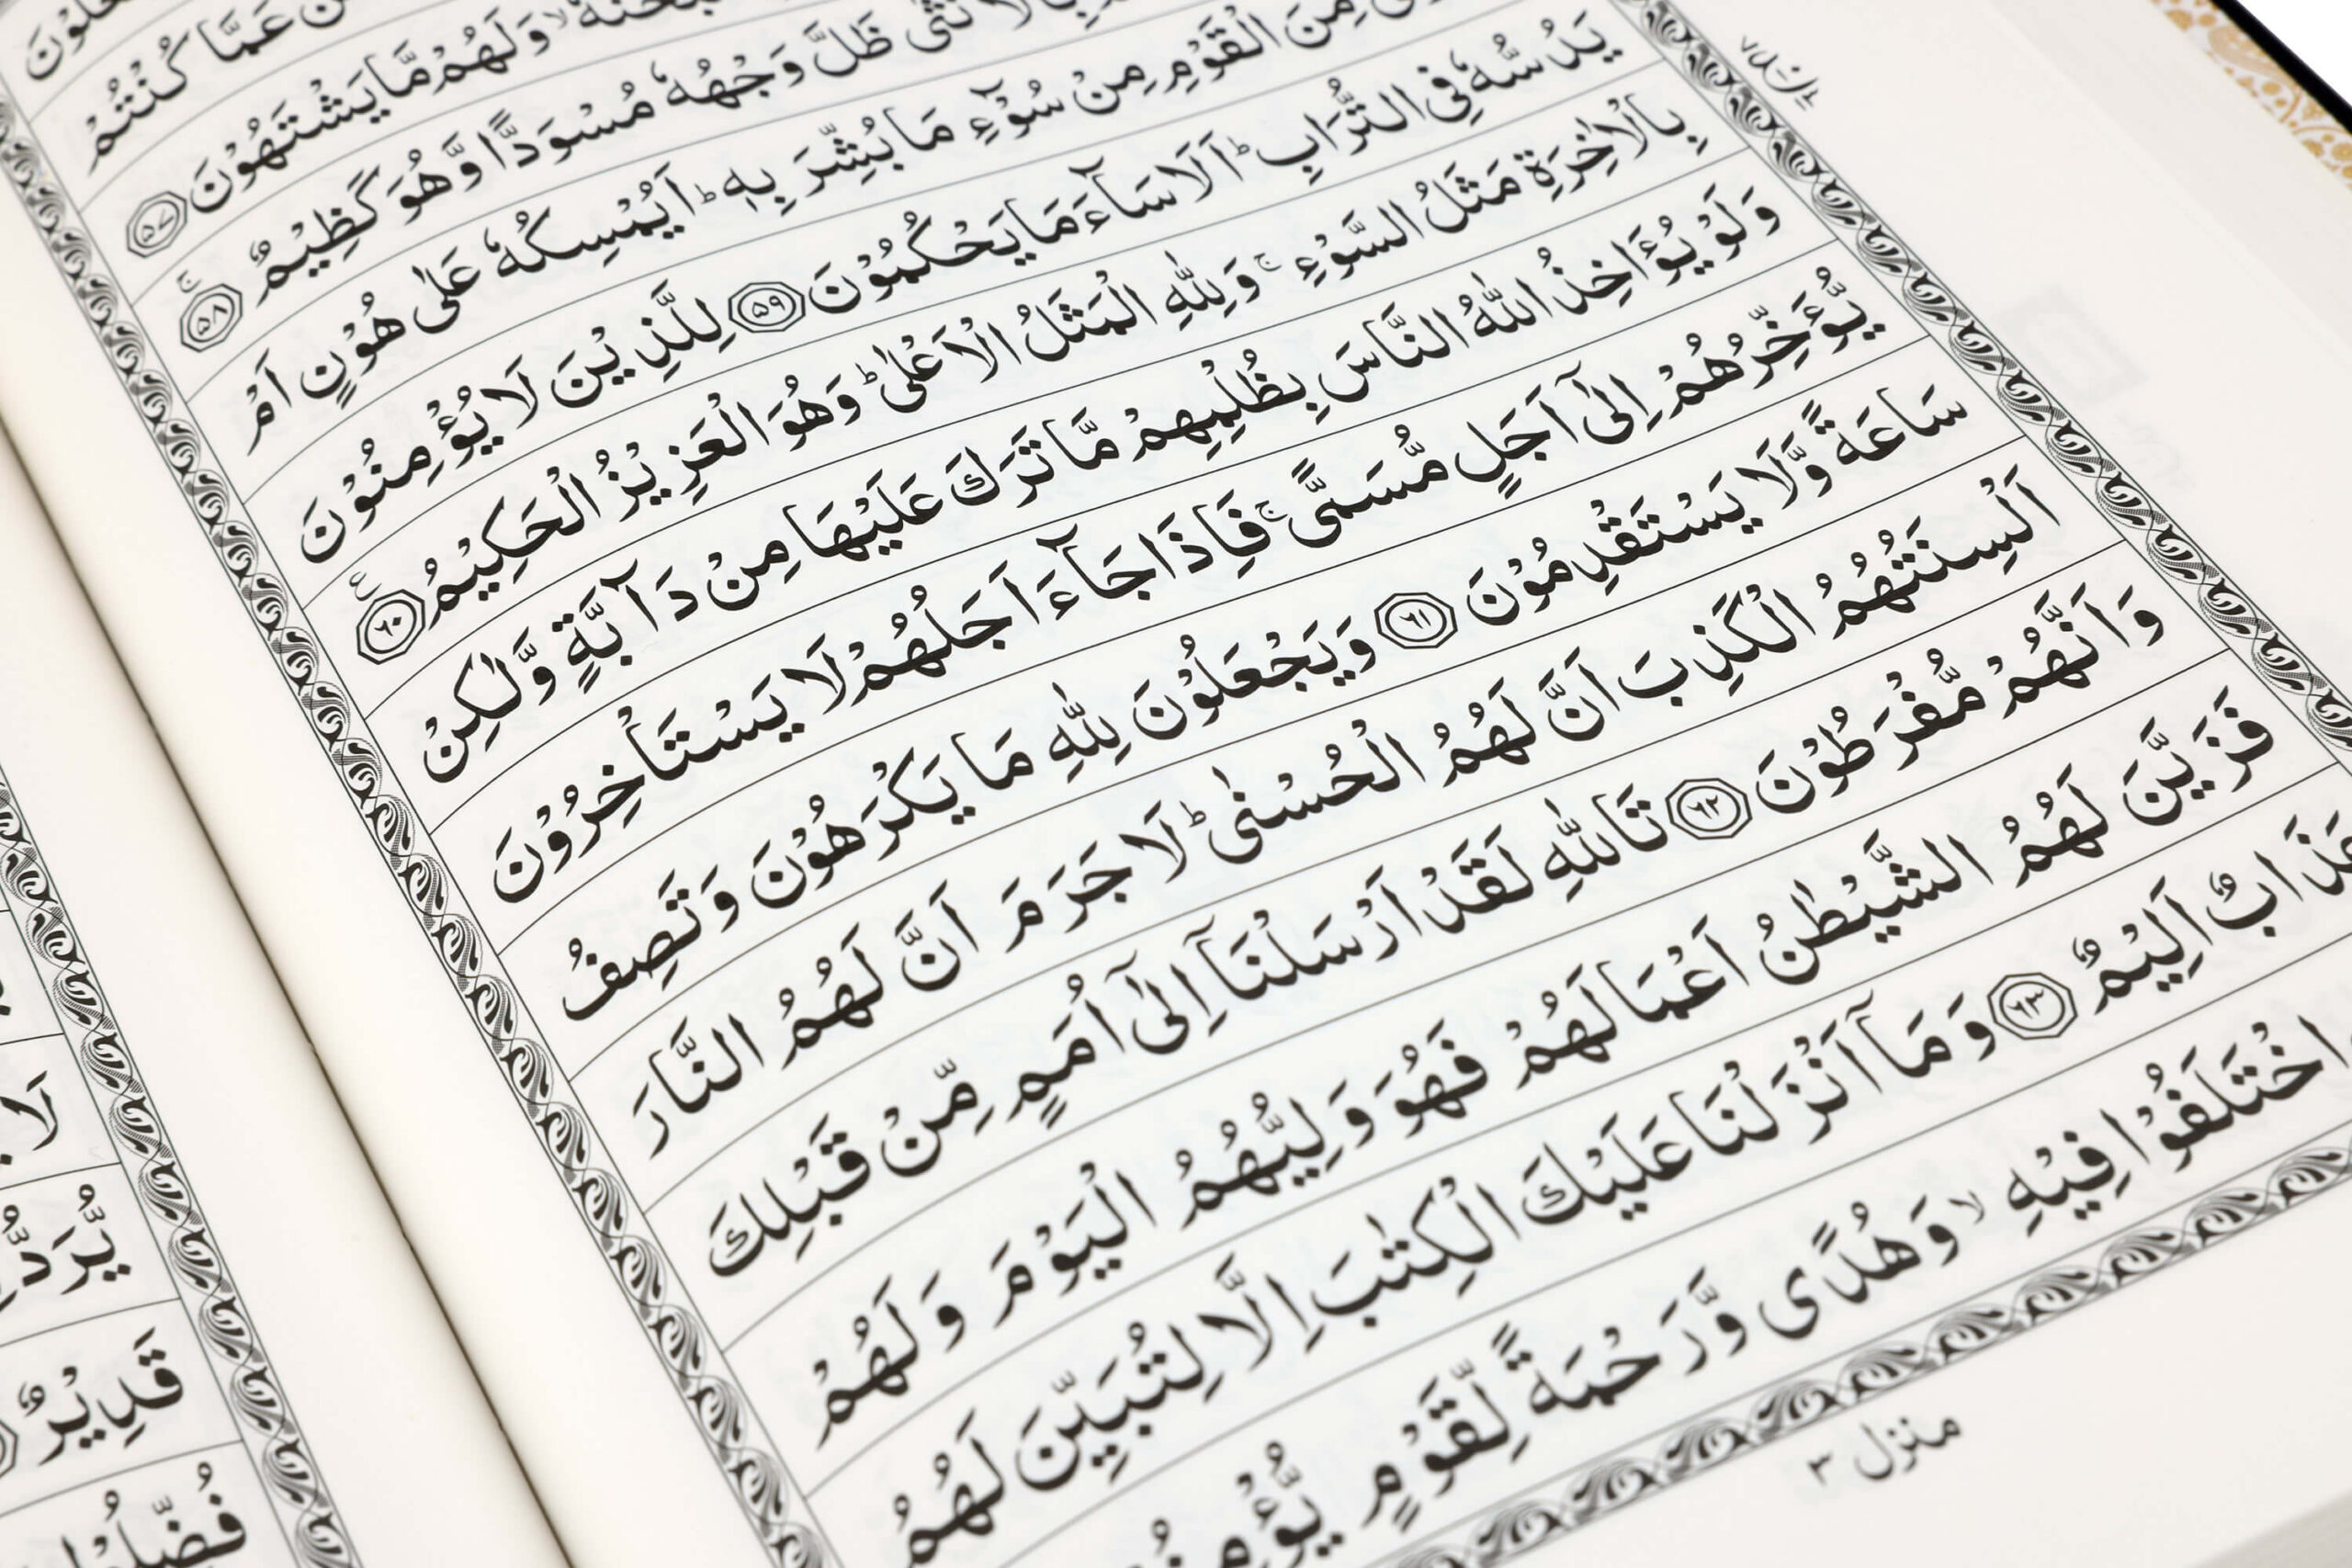 عَمَّا كُنْتُمْ
وَلَهُمْ مَّا يَشْتَهُوْنَ ﴿۵۷﴾
ظَلَّ وَجْهُهٗ مُسْوَدًّا وَّهُوَ كَظِيْمٌ ﴿ۚ۵۸﴾
مِنَ الْقَوْمِ مِنْ سُوْٓءِ مَا بُشِّرَ بِهٖ ؕ اَيُمْسِكُهٗ عَلٰى هُوْنٍ اَمْ
يَدُسُّهٗ فِى التُّرَابِ ؕ اَلَا سَآءَ مَا يَحْكُمُوْنَ ﴿۵۹﴾ لِلَّذِيْنَ لَا يُؤْمِنُوْنَ
بِالْاٰخِرَةِ مَثَلُ السَّوْءِ ۚ وَلِلّٰهِ الْمَثَلُ الْاَعْلٰى ؕ وَهُوَ الْعَزِيْزُ الْحَكِيْمُ ﴿۶۰﴾
وَلَوْ يُؤَاخِذُ اللّٰهُ النَّاسَ بِظُلْمِهِمْ مَّا تَرَكَ عَلَيْهَا مِنْ دَآبَّةٍ وَّلٰكِنْ
يُّؤَخِّرُهُمْ اِلٰٓى اَجَلٍ مُّسَمًّى ۚ فَاِذَا جَآءَ اَجَلُهُمْ لَا يَسْتَاْخِرُوْنَ
سَاعَةً وَّلَا يَسْتَقْدِمُوْنَ ﴿۶۱﴾ وَيَجْعَلُوْنَ لِلّٰهِ مَا يَكْرَهُوْنَ وَتَصِفُ
اَلْسِنَتُهُمُ الْكَذِبَ اَنَّ لَهُمُ الْحُسْنٰى ؕ لَا جَرَمَ اَنَّ لَهُمُ النَّارَ
وَاَنَّهُمْ مُّفْرَطُوْنَ ﴿۶۲﴾ تَاللّٰهِ لَقَدْ اَرْسَلْنَآ اِلٰٓى اُمَمٍ مِّنْ قَبْلِكَ
فَزَيَّنَ لَهُمُ الشَّيْطٰنُ اَعْمَالَهُمْ فَهُوَ وَلِيُّهُمُ الْيَوْمَ وَلَهُمْ
عَذَابٌ اَلِيْمٌ ﴿۶۳﴾ وَمَآ اَنْزَلْنَا عَلَيْكَ الْكِتٰبَ اِلَّا لِتُبَيِّنَ لَهُمُ
اخْتَلَفُوْا فِيْهِ ۙ وَهُدًى وَّرَحْمَةً لِّقَوْمٍ
منزل ٣
قَدِيْرٌ